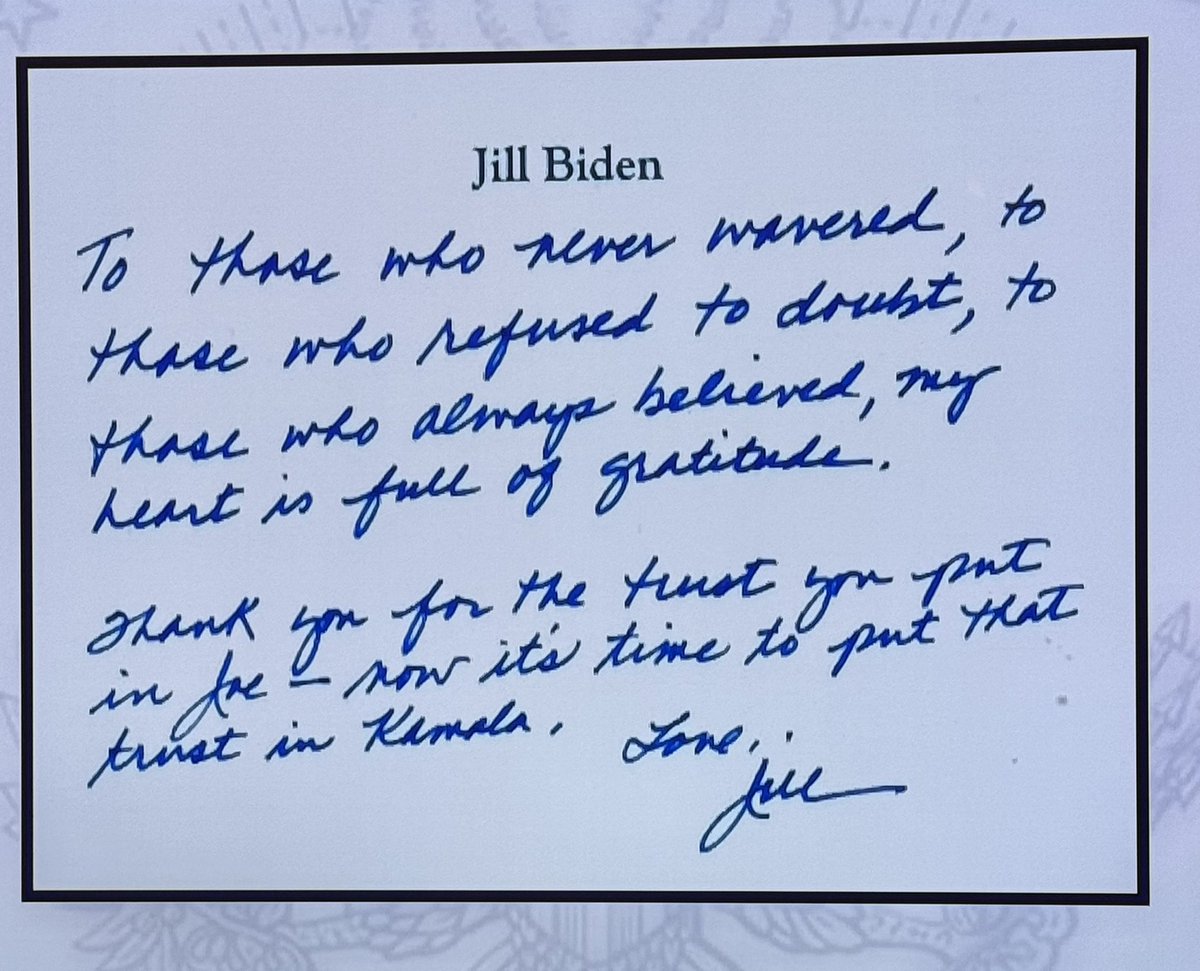 Jill Biden
To those who never wavered, to
those who refused to doubt, to
those who always believed, my
heart is full of gratitude.
Thank you for the trust you put
in Joe – now it's time to put that
trust in Kamala. Love,
Jill